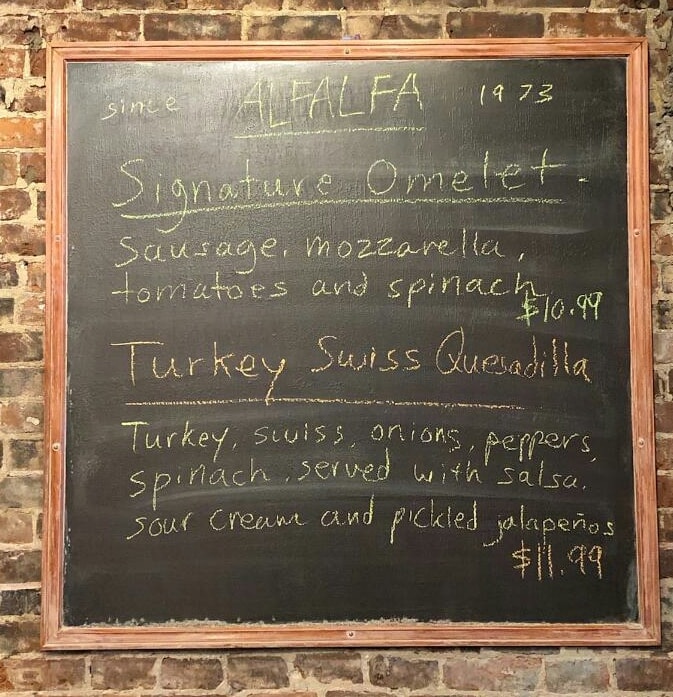 since ALFALFA 1973
Signature Omelet.
Sausage, mozzarella,
tomatoes and spinach
$10.99
Turkey Swiss Quesadilla
Turkey, swiss, onions, peppers,
spinach, served with salsa,
sour cream and pickled jalapeños
$11.99